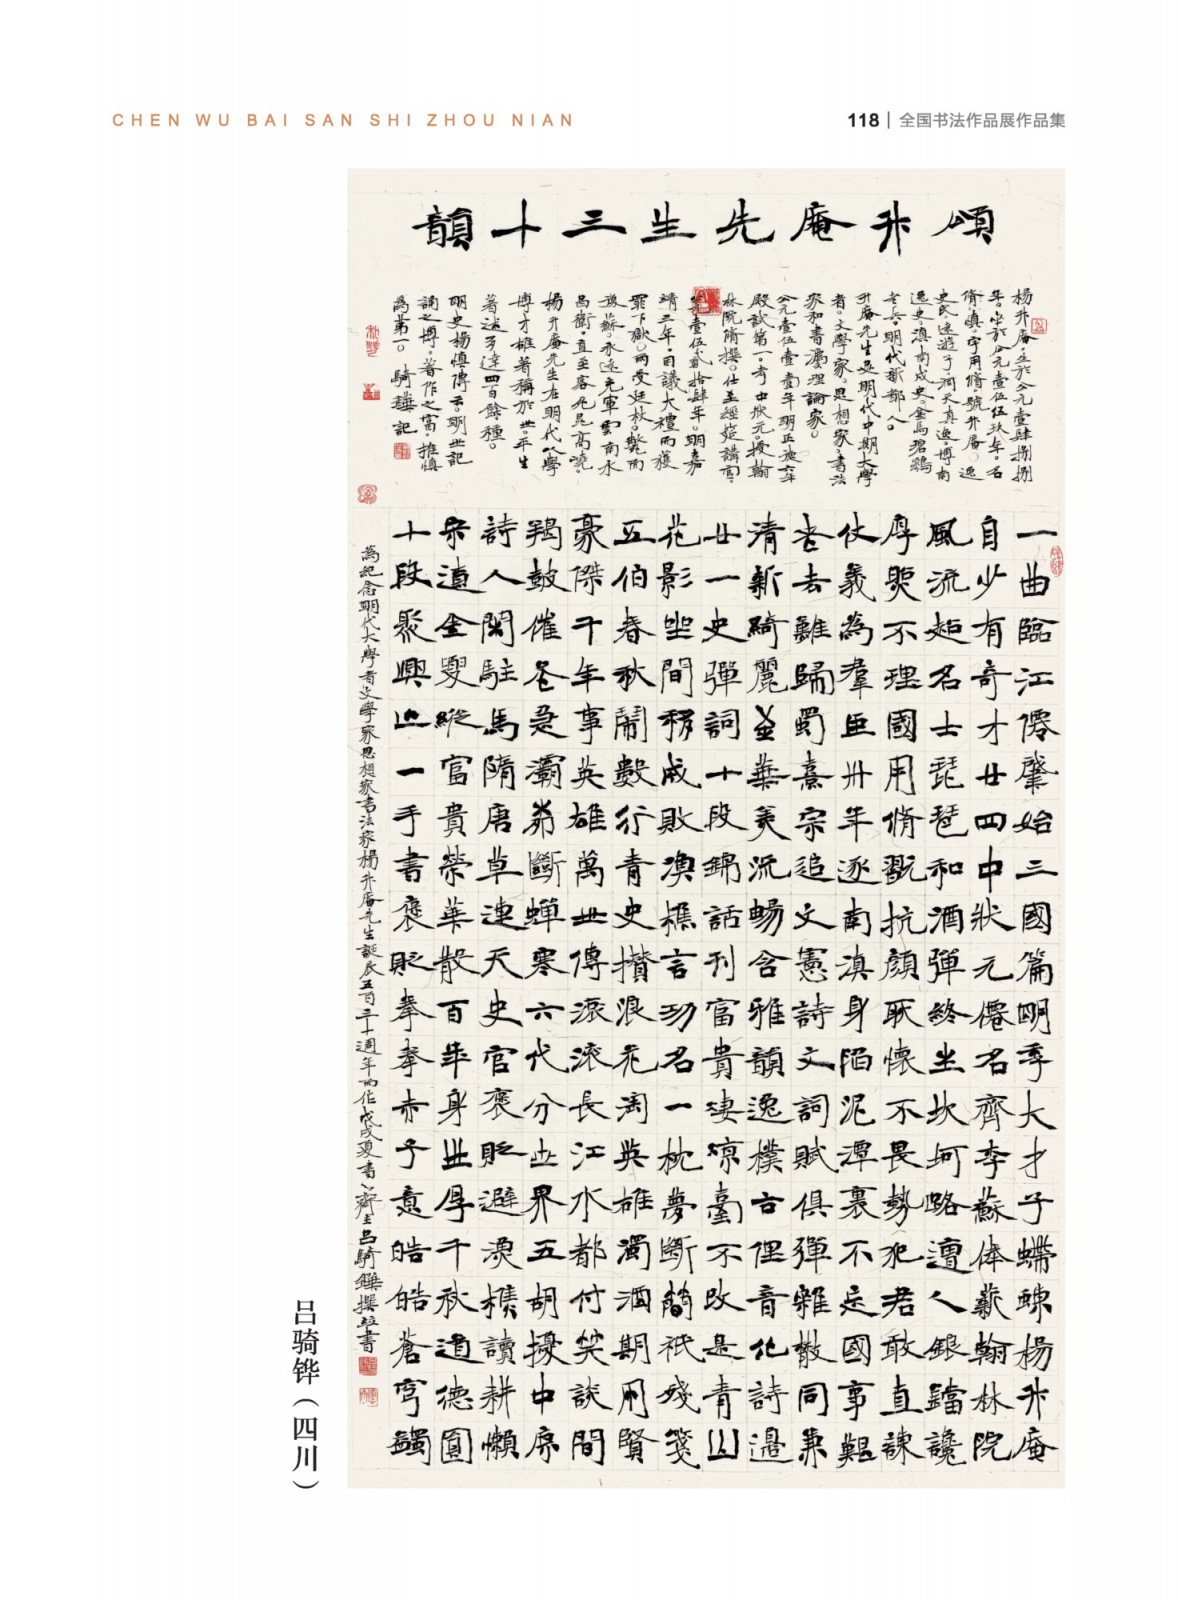 CHEN WU BAI SAN SHI ZHOU NIAN
118 | 全国书法作品展作品集
頌升庵先生三十韻
楊升庵。生於公元壹肆捌捌
年。卒於公元壹伍伍玖年。名
脩慎。字用脩。號升庵。逸
史氏遠遊子洞天真逸。博南
逸史。滇南戍史。金馬碧鷄
老兵。明代新都人。
升庵先生是明代中期大學
者。文學家。思想家。書法
家和書畫理論家。
公元壹伍壹壹年明正德六年
殿試第一。考中狀元。授翰
林院脩撰。仕至經筵講官。
公元壹伍貳拾肆年。明嘉
靖三年。因議大禮而獲
罪下獄。兩受廷杖。斃而
復蘇。永遠充軍雲南永
昌衛。直至客死昆高嶢。
楊升庵先生在明代以學
博才雄著稱於世。平生
著述多達四百餘種。
明史楊慎傳云。明世記
誦之博。著作之富。推慎
為第一。騎鏵記
一曲臨江僊肇始三國篇明季大才子蝀楊升庵
自少有奇才廿四中狀元僊名齊李蘇体薪翰林院
風流名士琵琶和酒彈終坐坎坷邅人銀鐺讒
厚不理國用脩抗顏耿懷不畏勢犯君敢直諫
仗義為羣臣卅年逐南滇身陷泥潭裏不忘國事艱
老去難歸蜀熹宗追文憲詩文詞賦俱彈雜散同兼
清新綺麗並華美流暢含雅韻逸樸古俚音化詩邊
廿一史彈詞十段錦話刊富貴凄涼臺不改是青山
花影坐間移成敗漁樵言功名一枕夢斷簡祇殘箋
五伯春秋鬧數行青史攢浪花淘英雄濁酒期用賢
豪傑千年事英雄萬世傳滾滾長江水都付笑談間
羯鼓催急灞岸斷蟬寒六代分世界五胡擾中原
詩人閑駐馬隋唐草連天史官褒貶避漁樵讀耕懶
宋遼金夏縱富貴榮華散百年身世厚千秋道德圓
十段聚興亡一手書褒貶拳拳赤子意皓皓蒼穹
為紀念明代大學者文學家思想家書法家楊升庵先生誕辰五百三十週年而作戊戌夏書齊主呂騎鏵撰並書
吕骑铧（四川）